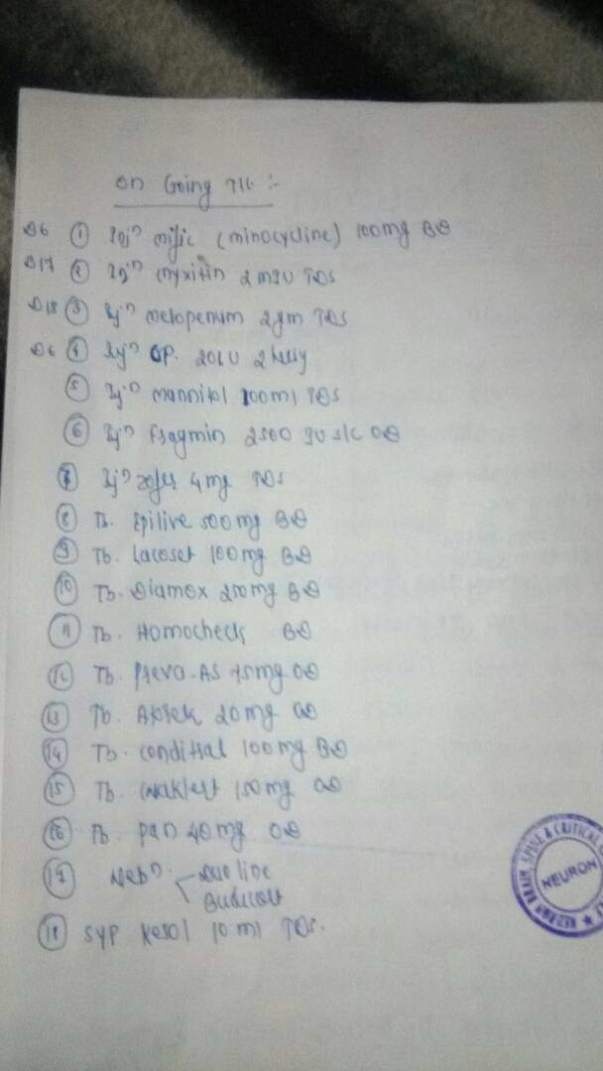 on Going T/t :-
D6 ① Inj⁰ mific (minocycline) 100mg BD
D17 ② Inj⁰ 2 mIU TDS
D18 ③ Inj⁰ meropenum 2gm TDS
D6 ④ Inj⁰ 20LU
⑤ Inj⁰ mannitol 100ml TDS
⑥ Inj⁰ Fragmin 2500 IU s/c OD
⑦ Inj⁰ zofer 4mg TDS
⑧ Tb. Epilive 500mg BD
⑨ Tb. Lacoset 100mg BD
⑩ Tb. Diamox 250mg BD
⑪ Tb. Homocheck BD
⑫ Tb. Preva-AS 75mg OD
⑬ Tb. 20mg OD
⑭ Tb. 100mg BD
⑮ Tb. 150mg OD
⑯ Tb. pan 40mg OD
⑰ Neb⁰. Duoline
Budecort
⑱ syp kesol 10 ml TDS.
BRAIN, SPINE & CRITICAL
NEURON